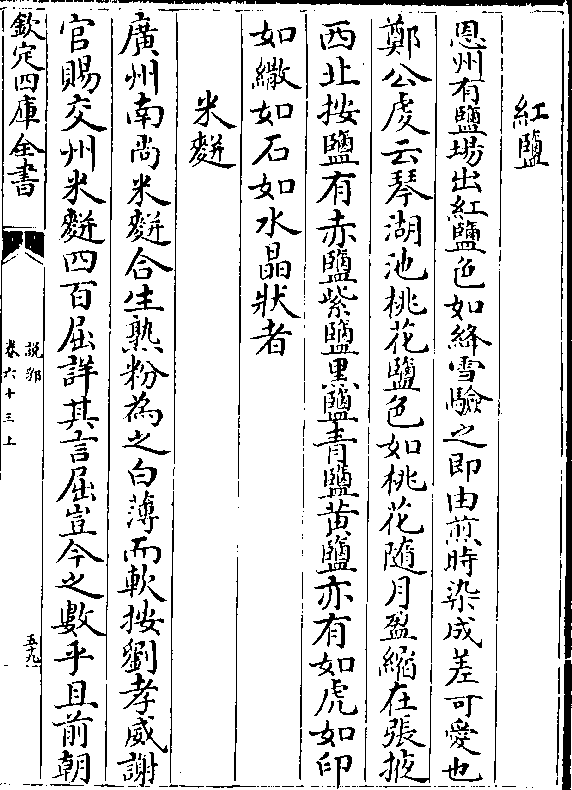 紅鹽
恩州有鹽場出紅鹽色如絳雪驗之即由煎時染成差可愛也
鄭公虔云琴湖池桃花鹽色如桃花隨月盈縮在張掖
西北按鹽有赤鹽紫鹽黒鹽青鹽黄鹽亦有如虎如印
如繖如石如水晶狀者
米䴵
廣州南尚米䴵合生熟粉為之白薄而軟按劉孝威謝
官賜交州米䴵四百屈詳其言屈豈今之數乎且前朝
欽定四庫全書
說郛
卷六十三上
五九